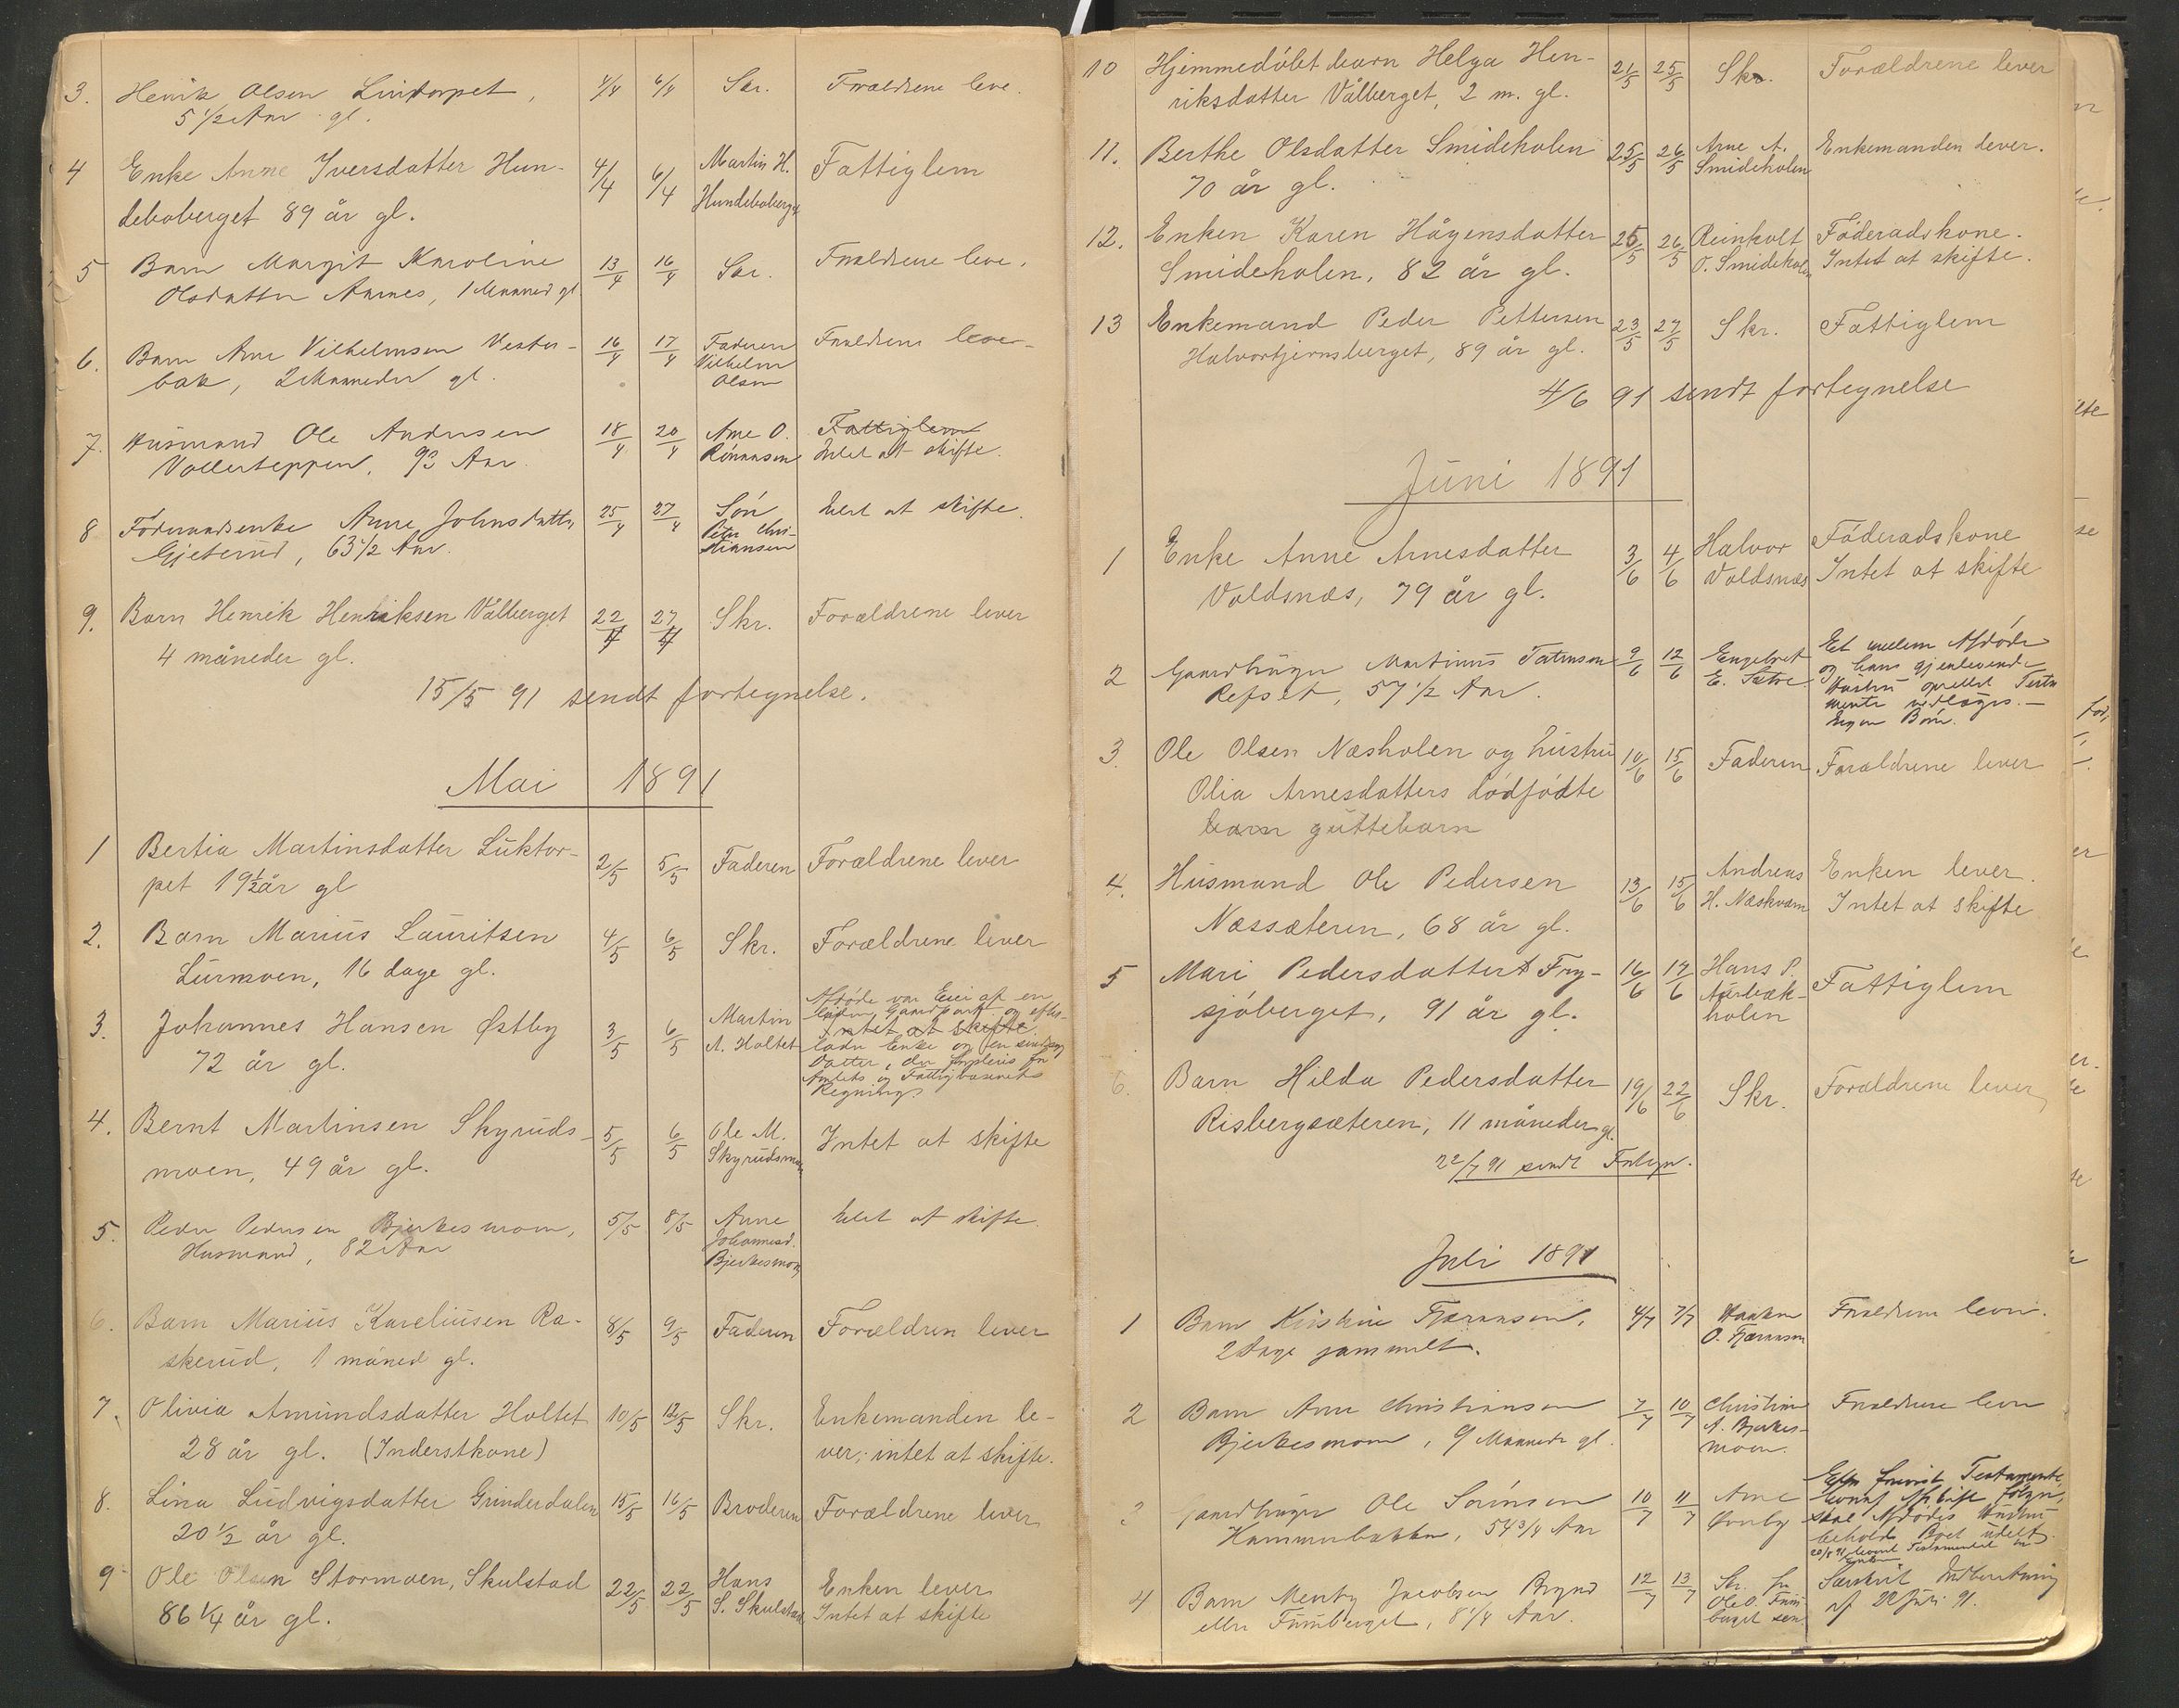 3. Henrik Olsen Lintorpet, 4/4 6/4 Skr. Forældrene leve.
5 1/2 Aar gl.
4 Enke Anne Iversdatter Hun- 4/4 6/4 Martin H. Fattiglem
deboberget 89 år gl. Hundeboberget
5 Barn Margit Karoline 13/4 16/4 Skr. Forældrene leve.
Olsdatter Aarnes, 1 Maaned gl
6. Barn Arne Vilhelmsen Vester- 16/4 17/4 Faderen Forældrene lever
bak, 2 Maaneder gl. Vilhelm
Olsen
7. Husmand Ole Andersen 18/4 20/4 Arne O. Fattiglem
Aar. Intet at skifte.
8 Anne Johnsdatter 25/4 27/4 Søn Intet at skifte.
Gjeterud, 63 1/2 Aar. Peter Chri-
stiansen
9. Barn Henrik Henriksen Vålberget 22/4 27/4 Skr. Forældrene lever
4 måneder gl.
15/5 91 sendt fortegnelse.
Mai 1891
1 Bertia Martinsdatter Luktor- 2/5 5/5 Faderen Forældrene lever
pet 19 1/2 år gl
2. Barn Marius Lauritsen 4/5 6/5 Skr. Forældrene lever
Lurmoen, 16 dage gl.
3. Johannes Hansen Østby 3/5 6/5 Martin Afdøde var Eier af en
72 år gl. A. Holtet liden Gaardpart og efter-
Intet at skifte.
lader Enke og en
Datter, der forpleies for
Amtets og Fattigvæsenets
Regning
4. Bernt Martinsen Skyruds- 5/5 6/5 Ole M. Intet at skifte
moen, 49 år gl. Skyrudsmoen
5. Peder Pedersen Bjerkesmoen, 5/5 8/5 Anne Intet at skifte.
Husmand, 82 Aar Johannesd.
Bjerkesmoen
6. Barn Marius Kareliusen Ra- 8/5 9/5 Faderen Forældren lever
skerud, 1 måned gl.
7. Olivia Amundsdatter Holtet 10/5 12/5 Skr. Enkemanden le-
28 år gl. (Inderstkone) ver; intet at skifte.
8. Lina Ludvigsdatter Grinderdalen 15/5 16/5 Broderen Forældrene lever
20 1/2 år gl.
9 Ole Olsen Stormoen, Skulstad 22/5 22/5 Hans Enken lever
86 1/4 år gl. S. Skulstad Intet at skifte
10 Hjemmedøbt barn Helga Hen- 21/5 25/5 Skr. Forældrene lever
riksdatter Vålberget, 2 m. gl.
11. Berthe Olsdatter Smideholen 25/5 26/5 Arne A. Enkemanden lever.
70 år gl. Smideholen
12. Enken Karen Hågensdatter 25/5 26/5 Reinholt Føderadskone.
Smideholen, 82 år gl. O. Smideholen Intet at skifte.
13 Enkemand Peder Pettersen 23/5 27/5 Skr. Fattiglem
Halvortjernsberget, 89 år gl.
4/6 91 sendt fortegnelse
Juni 1891
1 Enke Anne Arnesdatter 3/6 4/6 Halvor Føderadskone
Voldsnæs, 79 år gl. Voldsnæs Intet at skifte
2 Gaardbruger Martinus 9/6 12/6 Engebret Et mellem Afdøde
Refset, 57 1/2 Aar. E. Sætre og hans gjenlevende
Hustru oprettet Testa
mente vedlægges. —
Ingen Børn.
3. Ole Olsen Næsholen og hustru 10/6 15/6 Faderen Forældrene lever
Olia Arnesdatters dødfødte
barn guttebarn
4. Husmand Ole Pedersen 13/6 15/6 Andreas Enken lever.
Næssæteren, 68 år gl. H. Næskvæm Intet at skifte
5 Mari Pedersdatter Fry- 16/6 17/6 Hans P. Fattiglem
sjøberget, 91 år gl. Aurbæk-
holen
6. Barn Hilda Pedersdatter 19/6 22/6 Skr. Forældrene lever
Risbergsæteren, 11 måneder gl.
22/7 91 sendt Fortegn.
Juli 1891
1 Barn Kristine Fjæransen, 4/7 7/7 Haaken Forældrene lever.
2 Dage gammelt. O. Fjæransen
2 Barn Arne Christiansen 7/7 10/7 Christian Forældrene leve
Bjerkesmoen, 9 Maaneder gl. A. Bjerkes-
moen.
3 Gaardbruger Ole Sørensen 10/7 11/7 Arne Testamente,
Hammerbakken, 54 3/4 Aar skal Afdødes Hustru
beholde Boet udelt.
4 Barn Jacobsen 12/7 13/7 Skr. Særskilt Indberetning
eller Furuberget, 8 1/4 Aar. Ole O. af 22 Juli 91.